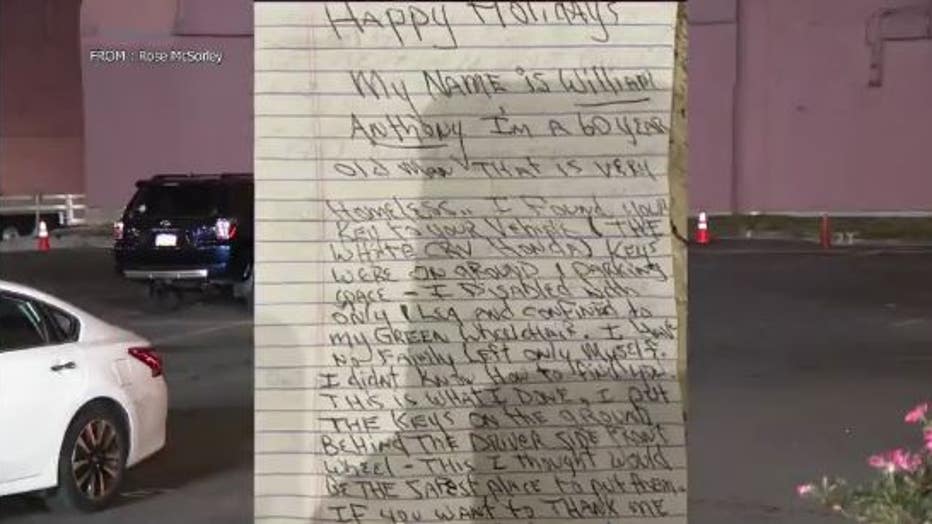 FROM : Rose McSorley
Happy Holidays
My NAME is William
Anthony I'm A 60 YEAR
OLD MAN THAT IS VERY
HOMELESS.. I Found your
KEY to your VEHICLE (THE
WHITE CRV HONDA) KEYS
WERE ON GROUND & PARKING
SPACE - I DISABLED with
ONLY 1 LEG AND CONFINED to
my GREEN WheelchAIR. I HAVE
NO FAMILY LEFT ONLY MYSELF.
I didnt KNOW HOW to FIND YOU
THIS IS WHAT I DONE, I PUT
THE KEYS ON the GROUND
BEHIND THE DRIVER SIDE FRONT
WHEEL - THIS I thought WOULD
BE THE SAFEST PLACE to PUT them.
IF YOU WANT to THANK ME